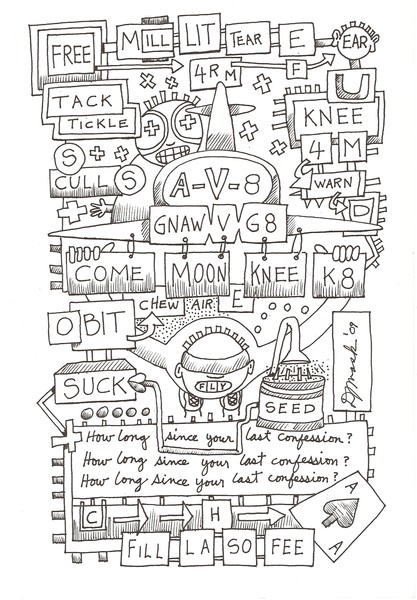 FREE MILL LIT TEAR E EAR
4RM F
U
TACK
TICKLE
KNEE
4 M
S
CULL S
WARN
D
A-V-8
GNAW V G8
COME MOON KNEE K8
CHEW AIR E
O BIT
FLY
SUCK
SEED
How long since your last confession?
How long since your last confession?
How long since your last confession?
C H
A
A
FILL LA SO FEE